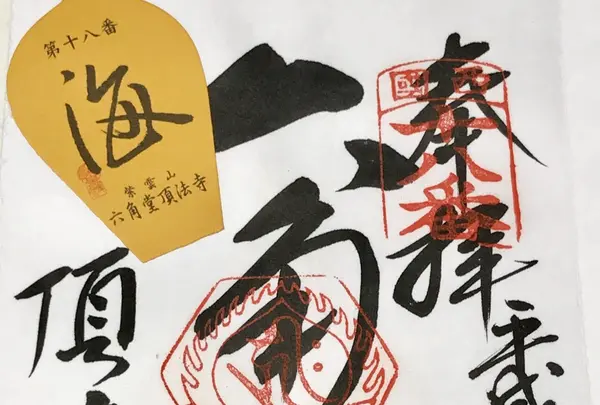 奉拝
平成
西國
十八番
六角
頂
第十八番
海
紫雲山
六角堂頂法寺